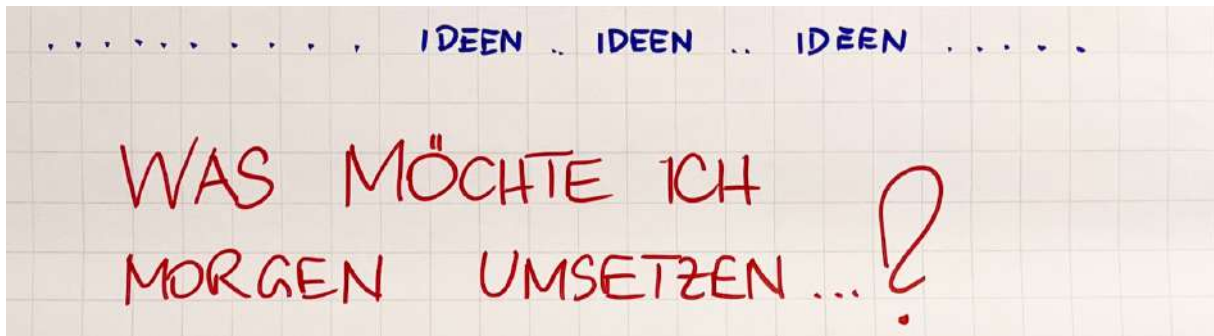 .......... IDEEN .. IDEEN .. IDEEN .....
WAS MÖCHTE ICH
MORGEN UMSETZEN...?